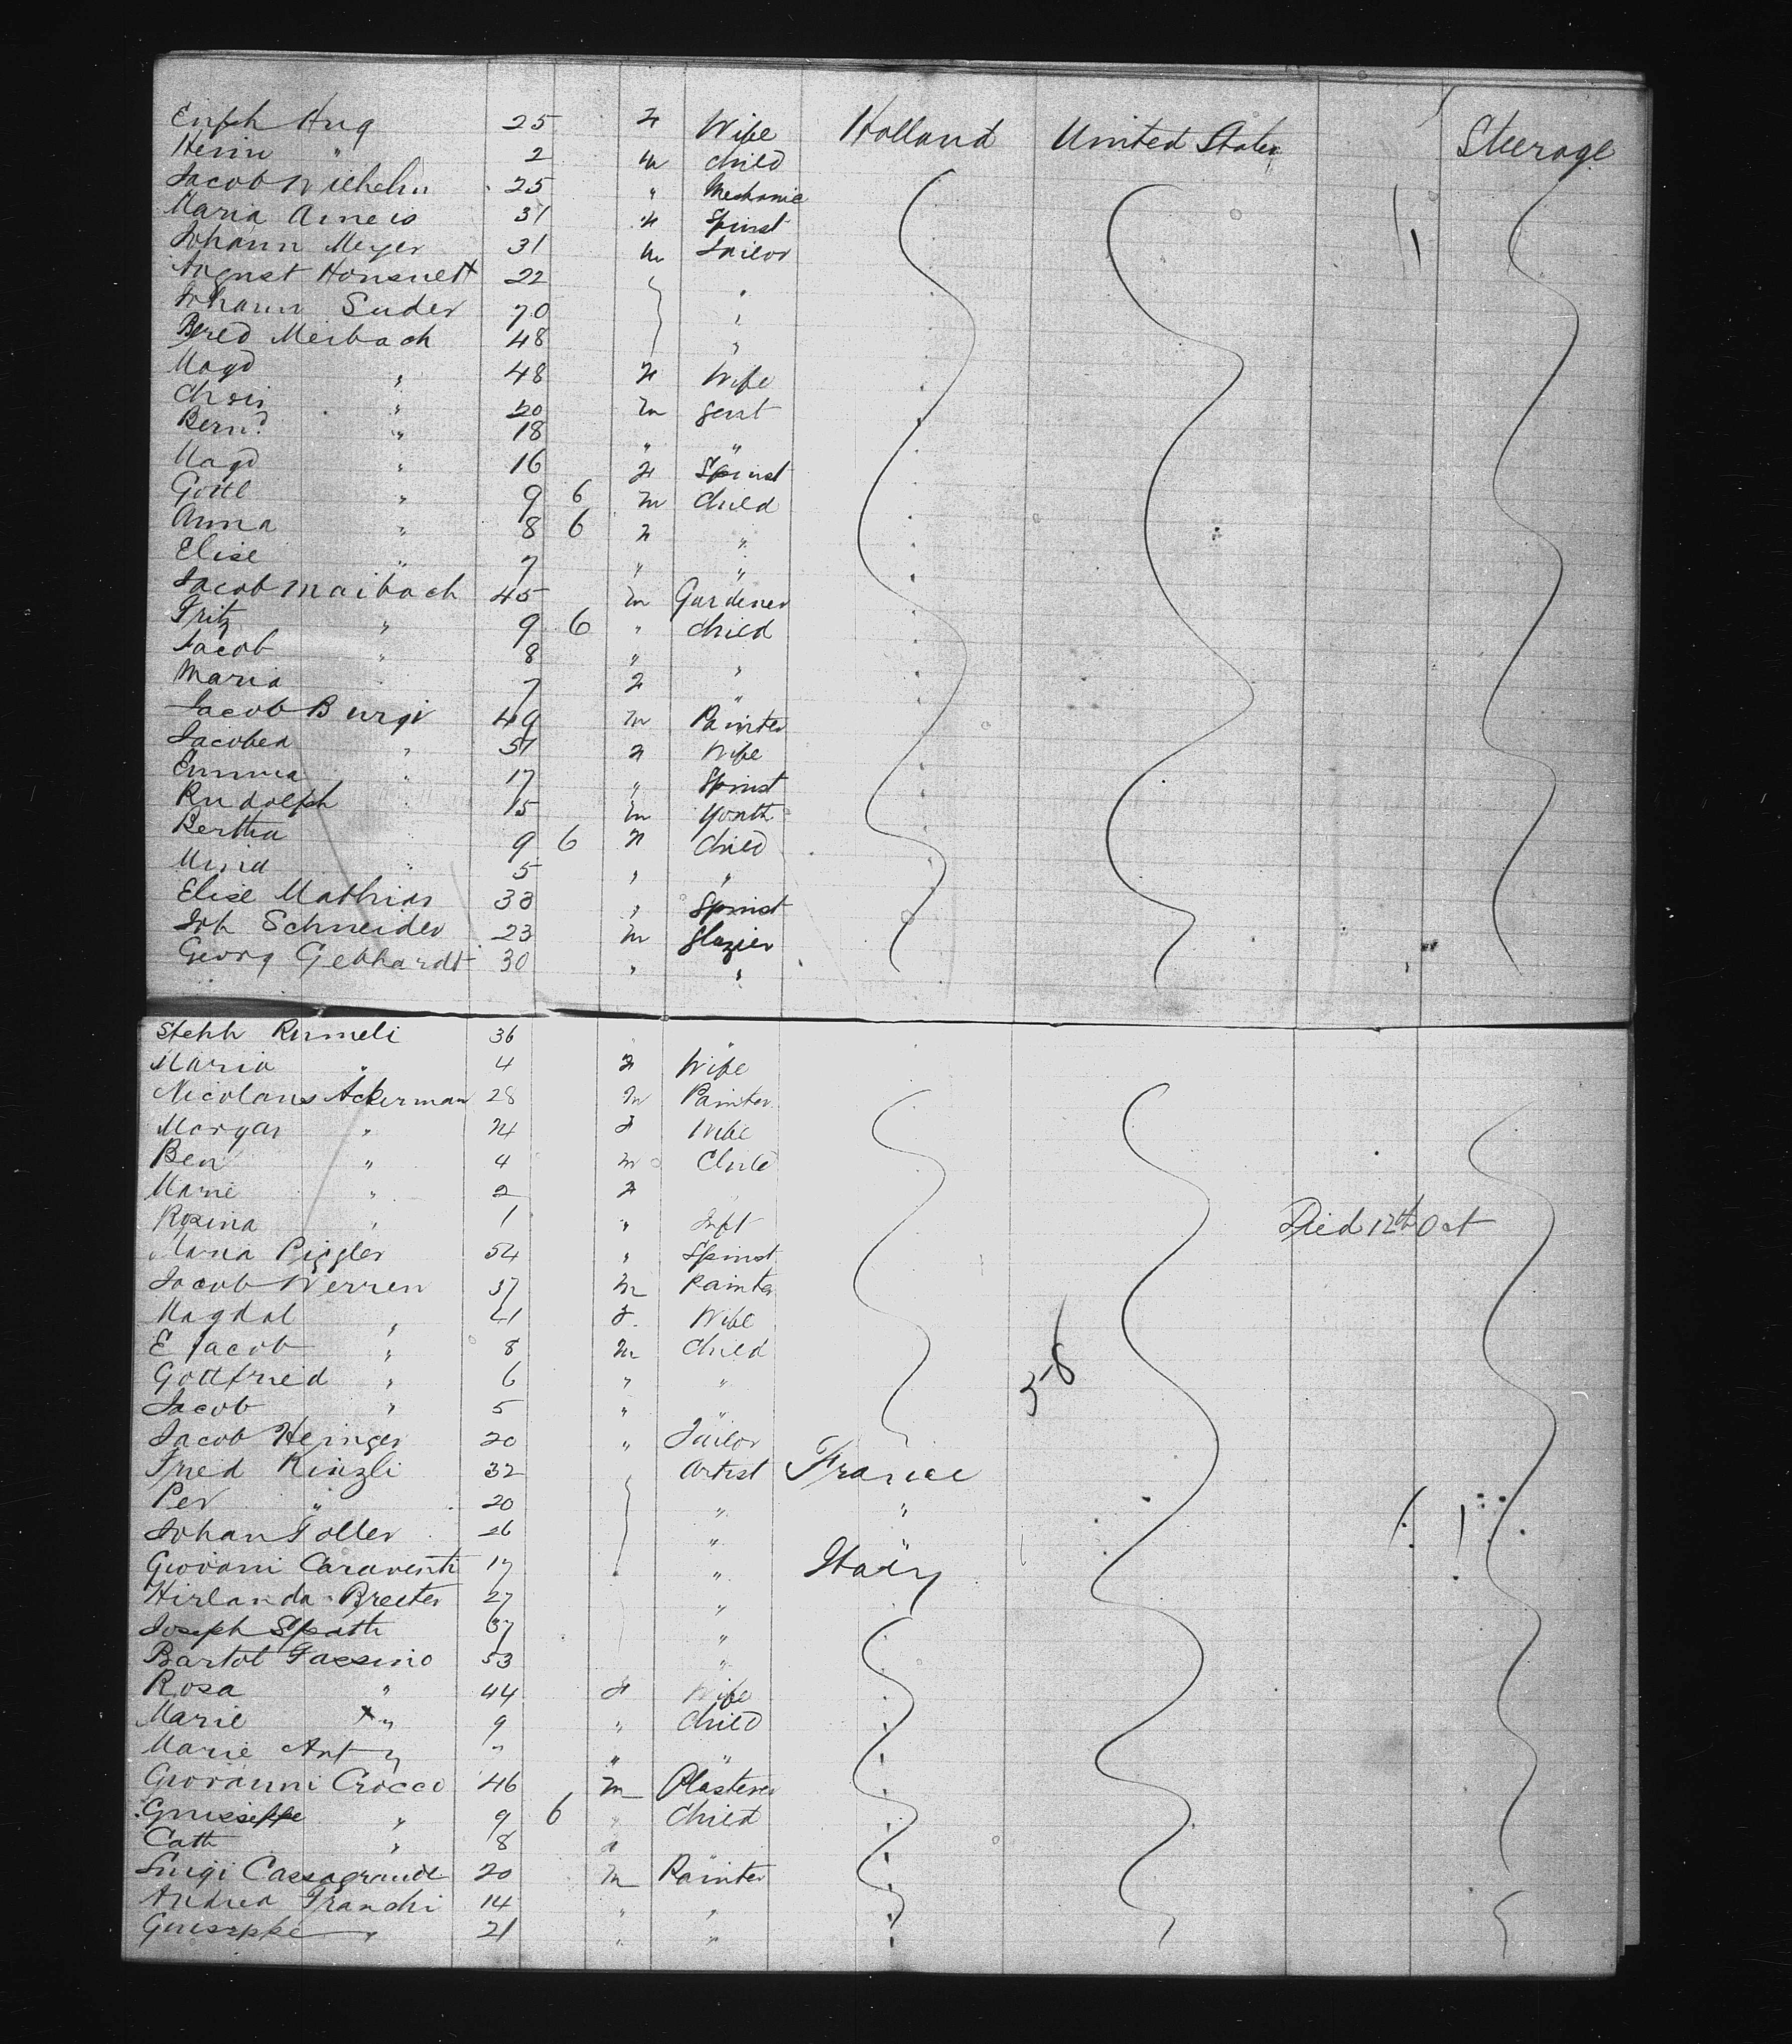 Enph Hug 25 F Wife Holland United States Steerage
Heinr " 2 m child
Jacob Wilhelm 25 " Mechanic
Maria Arneis 31 F Spinst
Johann Meyer 31 m Tailor
August Honsnett 22 "
Johann Suder 70 "
Bered Meibach 48 "
Magd " 48 F Wife
Chris " 20 m Gent
Bernd " 18 " "
Magd " 16 F Spinst
Gottl " 9 6 m Child
Anna " 8 6 F "
Elise " 7 " "
Jacob Maibach 45 m Gardener
Fritz " 9 6 " child
Jacob " 8 " "
Maria " 7 F "
Jacob Burgi 49 m Painter
Jacobea " 51 F Wife
Emma " 17 " Spinst
Rudolph " 15 m Youth
Bertha " 9 6 F Child
Mina " 5 " "
Elise Mathias 33 " Spinst
Joh Schneider 23 m Glazier
Georg Gebhardt 30 " "
Steph Rumeli 36 " "
Maria " 4 F Wife
Nicolaus Ackerman 28 m Painter
Margar " 24 F Wife
Ben " 4 m Child
Marie " 2 F
Rosina " 1 " Inft Died 12th Oct
Maria Piggler 54 " Spinst
Jacob Werren 37 m Painter
Magdal " 41 F Wife
E Jacob " 8 m Child
Gottfried " 6 " "
Jacob " 5 " "
Jacob Heringer 20 " Tailor
Fried Kinzli 32 Artist France
Per " 20 " "
Johan Toller 26 " "
Giovani Caraventi 17 " Italy
Hirlanda Breeter 27 "
Joseph Spath 37 "
Bartol Fassino 53 "
Rosa " 44 F Wife
Marie x " 9 " Child
Marie Ant " " "
Giovanni Crocco 46 m Plasterer
Guiseppe " 9 6 " Child
Cath " 8
Luigi Cassagrande 20 m Painter
Andrea Franchi 14 " "
Guiseppe " 21 " "